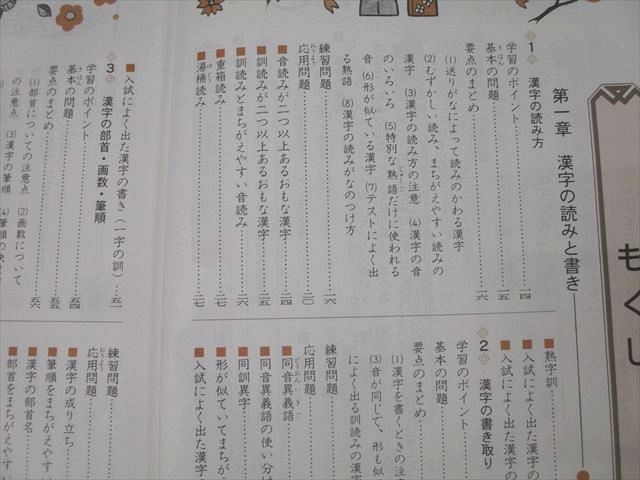 もくじ
第一章 漢字の読みと書き
1 漢字の読み方
学習のポイント……一四
基本の問題……一五
要点のまとめ……一六
(1)送りがなによって読みのかわる漢字
(2)むずかしい読み、まちがえやすい読みの
漢字 (3)漢字の読み方の注意 (4)漢字の音
のいろいろ (5)特別な熟語だけに使われる
音 (6)形が似ている漢字 (7)テストによく出
る熟語 (8)漢字の読みがなのつけ方
練習問題……一六
応用問題……二〇
■音読みが二つ以上あるおもな漢字……二四
■訓読みが二つ以上あるおもな漢字……二五
■訓読みとまちがえやすい音読み……二六
■重箱読み……二七
■湯桶読み……二七
■熟字訓
■入試によく出た漢字の
■入試によく出た漢字の
2 漢字の書き取り
学習のポイント
基本の問題
要点のまとめ
(1)漢字を書くときの注
(3)音が同じで、形も似
によく出る訓読みの漢
練習問題
応用問題
■同音異義語
■同音異義語の使い分け
■同訓異字
■形が似ていてまちが
■入試によく出た漢字
■入試によく出た漢字の書き(一字の訓)……五一
3 漢字の部首・画数・筆順
学習のポイント……
基本の問題……五五
要点のまとめ……五六
(1)部首についての注意点 (2)画数について
の注意点 (3)漢字の筆順 (4)筆順の決
練習問題
応用問題
■漢字の成り立ち
■筆順をまちがえやす
■漢字の部首名
■部首をまちがえやす